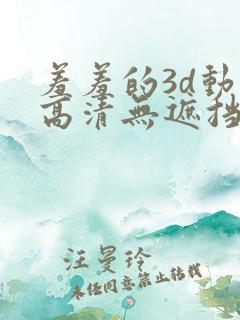 羞羞的3d動
高清無遮挡
汪曼玲
未经同意禁止转载